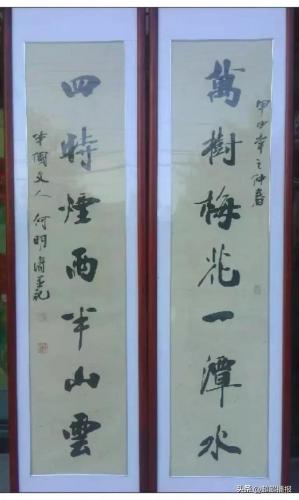 萬樹梅花一潭水
甲申年之仲春
四時煙雨半山雲
文人何明
头条 @ 播报